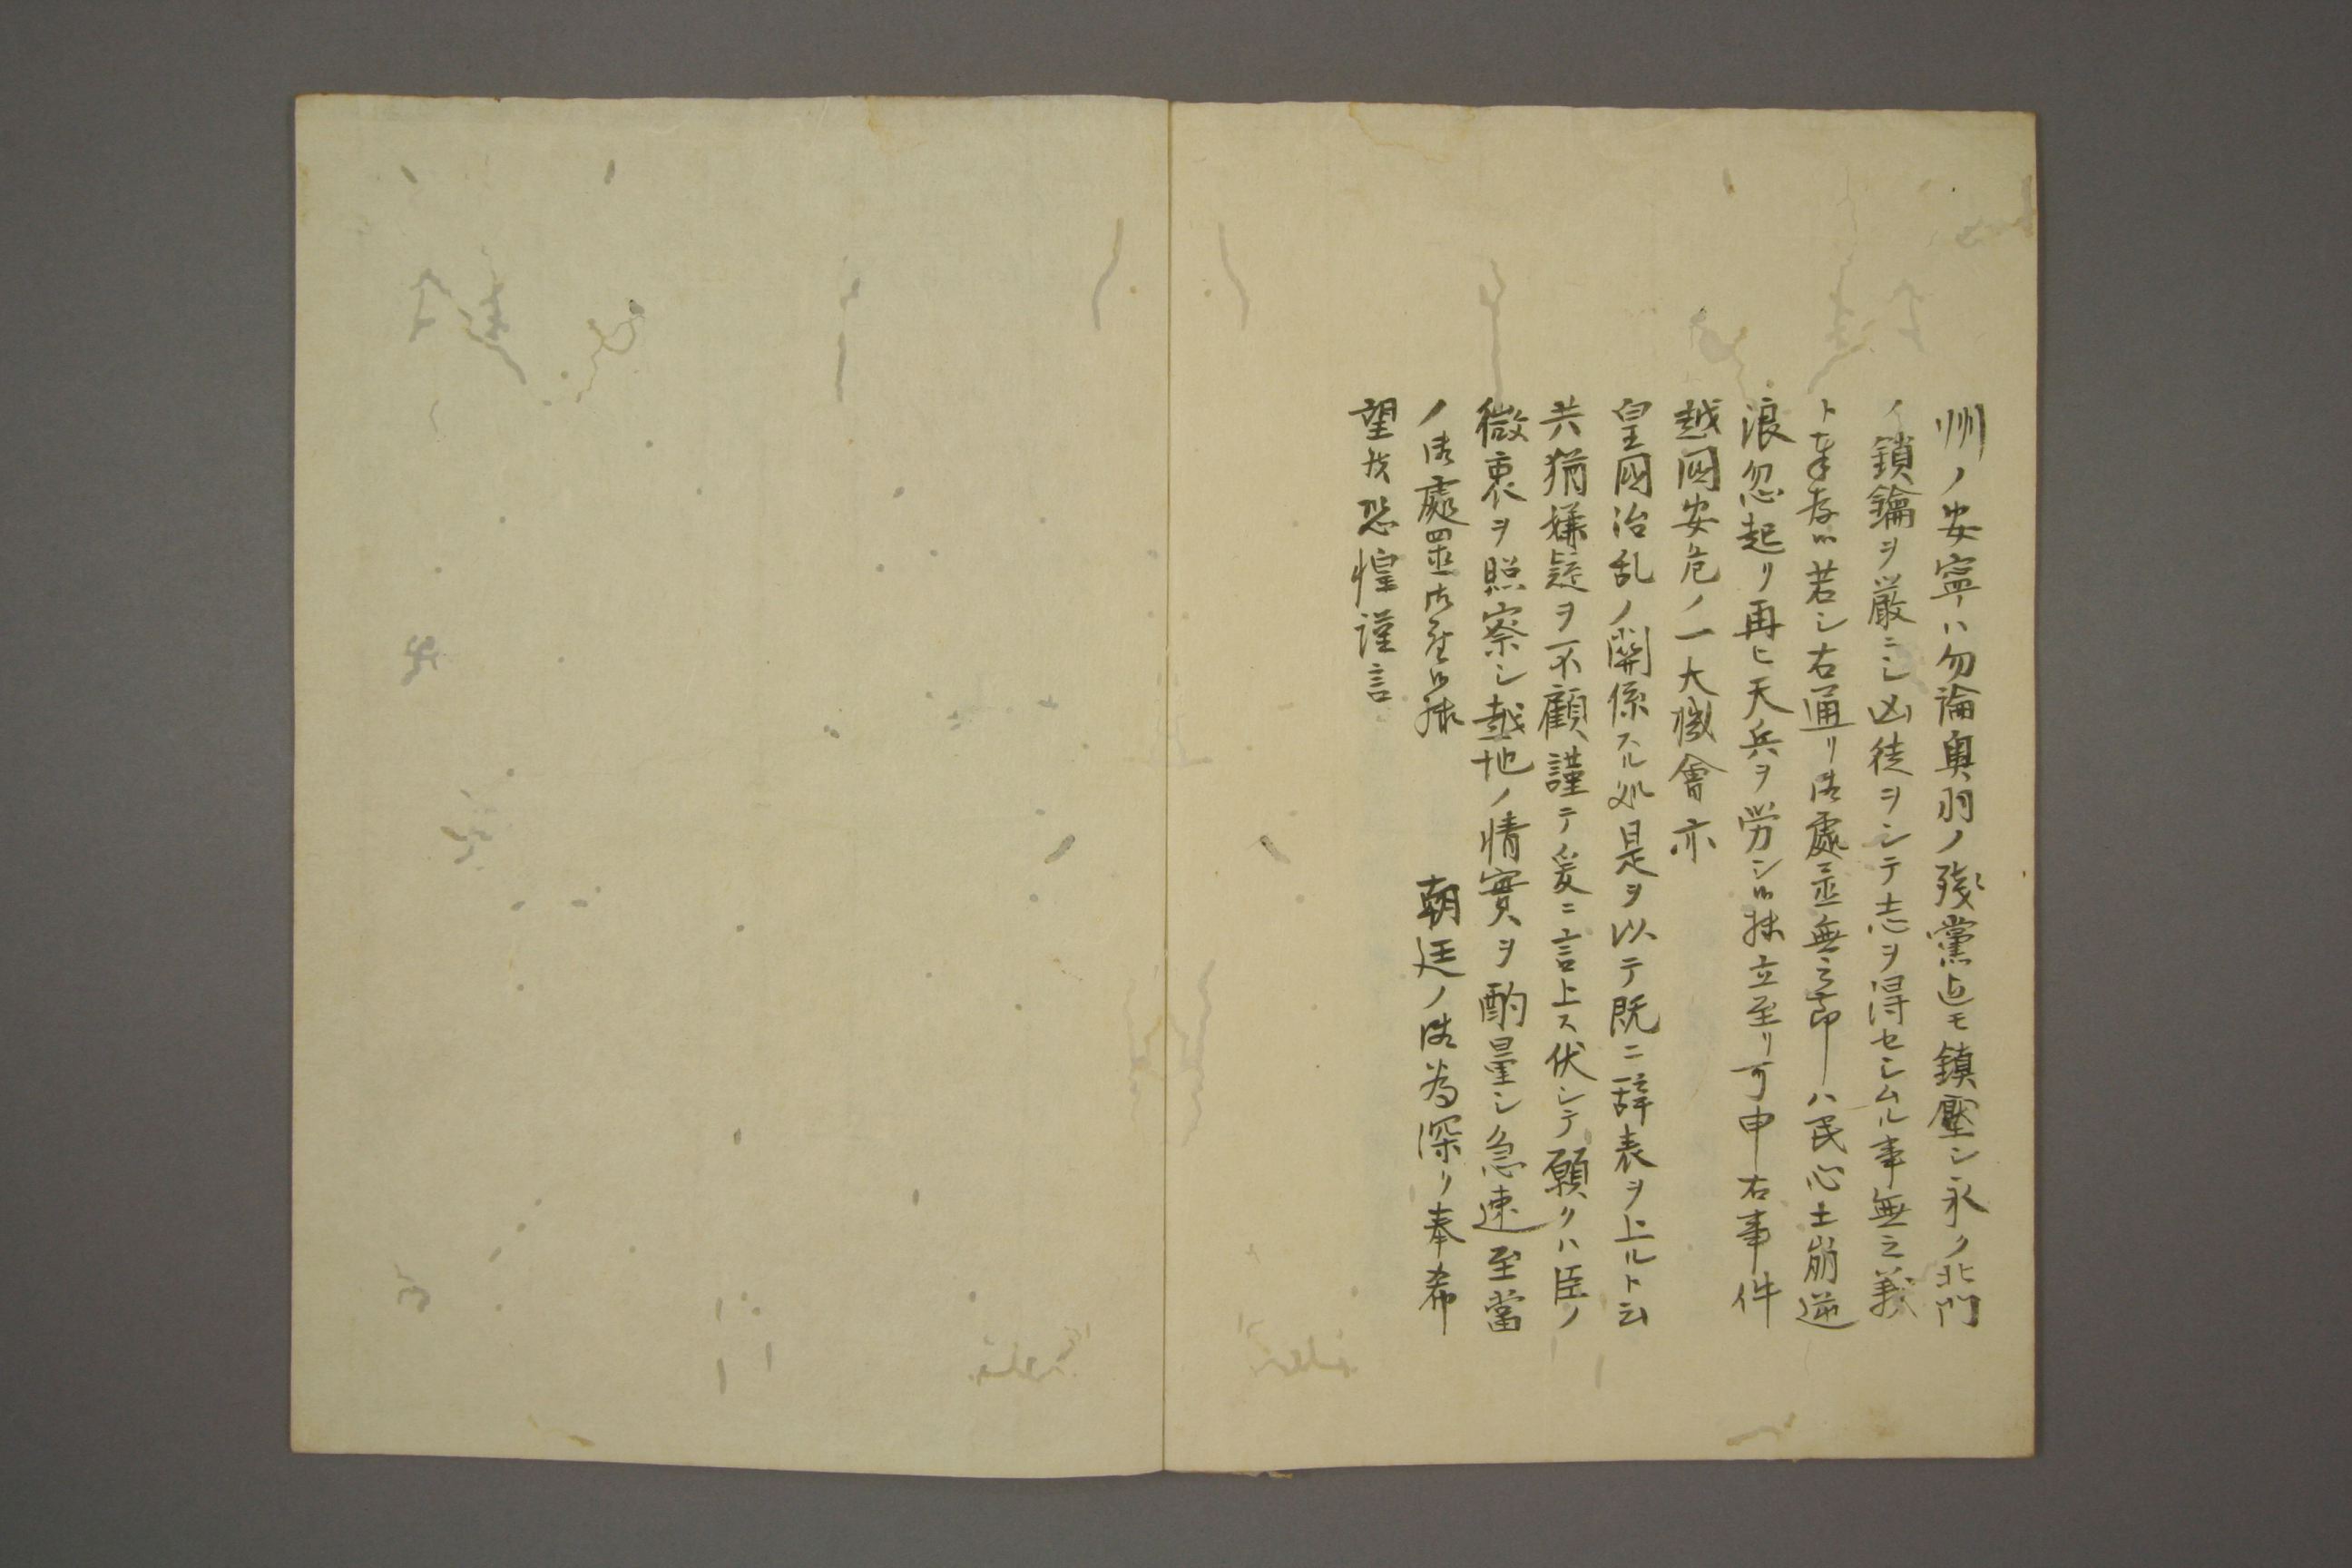 州ノ安寧ハ勿論奥羽ノ残黨迠モ鎮壓シ永ク北門
ノ鎖鑰ヲ厳ニシ凶徒ヲシテ志ヲ得セシムル事無之義
ト奉存候若シ右通リ御處置無之節ハ民心土崩逆
浪忽起リ再ヒ天兵ヲ労シ候様立至リ可申右事件
越國安危ノ一大機會亦
皇國治乱ノ関係スル処是ヲ以テ既ニ辞表ヲ上ルト云
共猶嫌疑ヲ不顧謹テ爰ニ言上ス伏シテ願クハ臣ノ
微衷ヲ照察シ越地ノ情實ヲ酌量シ急速至當
ノ御處置御座候様　朝廷ノ御為深ク奉希
望候恐惶謹言